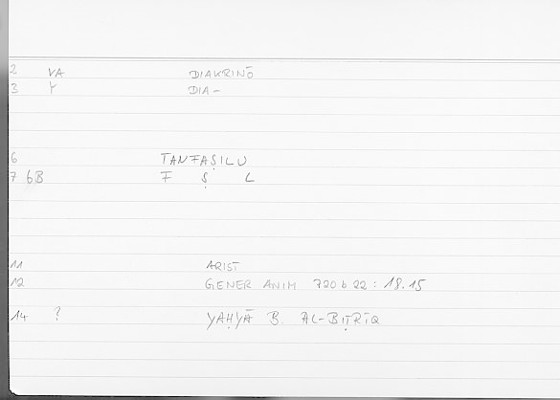 2 VA DIAKRINŌ
3 Y DIA-
6 TANFAṢILU
7 6B F Ṣ L
11 ARIST
12 GENER ANIM 720 b 22 : 18.15
14 ? YAḤYĀ B. AL-BIṬRĪQ